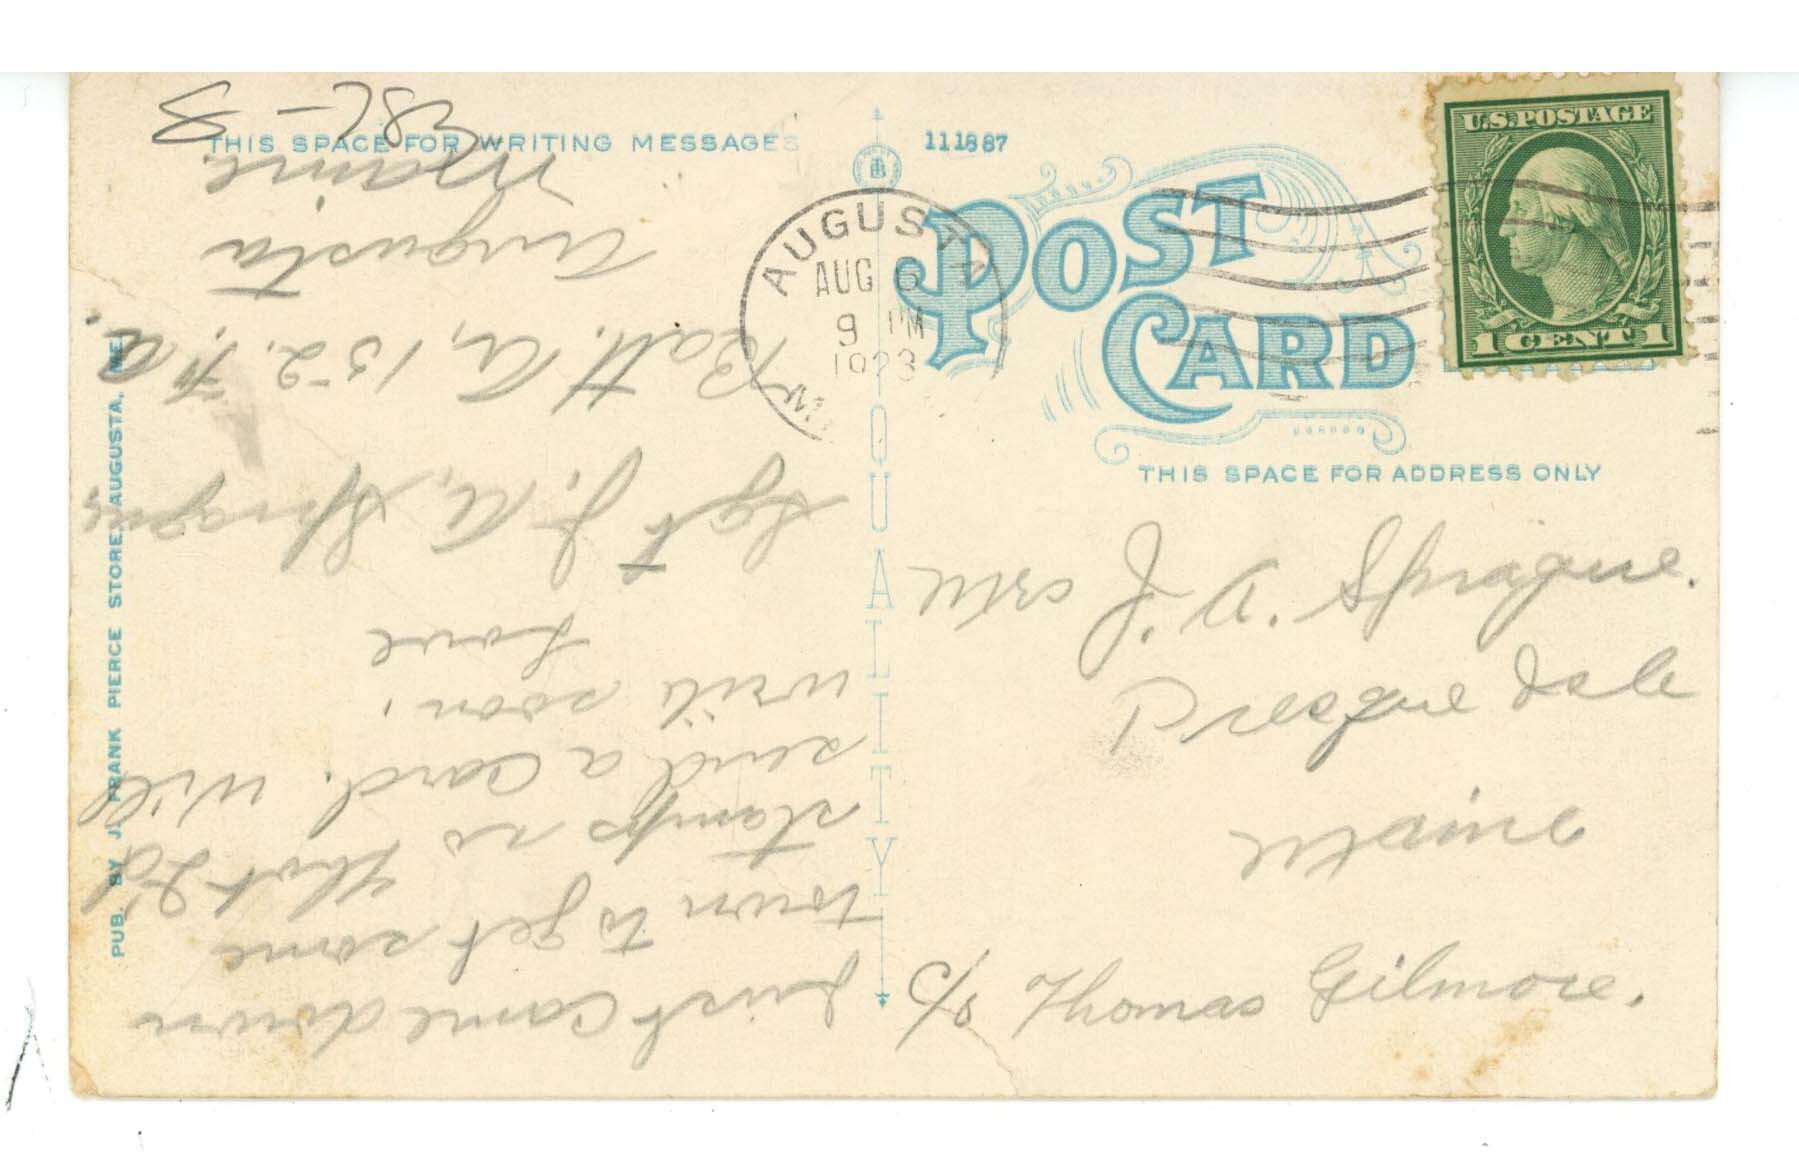 THIS SPACE FOR WRITING MESSAGES
111887
POST
CARD
U.S. POSTAGE
1 CENT 1
AUGUSTA
AUG 6
9 PM
1923
ME.
QUALITY
THIS SPACE FOR ADDRESS ONLY
Mrs J. A. Sprague.
Presque Isle
Maine
c/o Thomas Gilmore.
Just came down
town to get some
stamps so that I'd
send a card. will
write soon.
Love
Sgt J. A. Sprague
Batt. A, 152. F. A.
Augusta
Maine.
PUB. BY J. FRANK PIERCE STORE, AUGUSTA, ME.